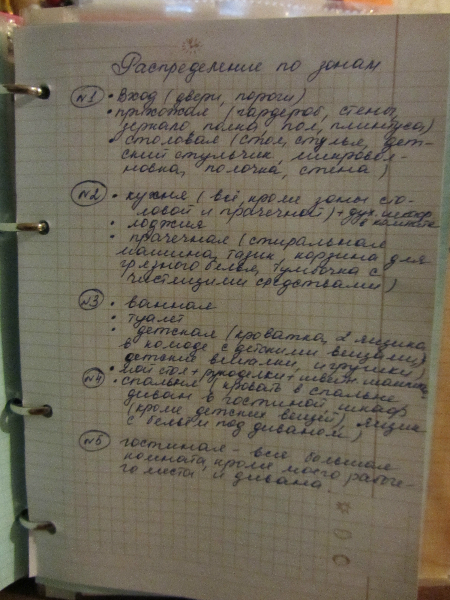 Распределение по зонам
№1 • Вход (двери, пороги)
• прихожая (гардероб, стены,
зеркало, полка, пол, плинтуса)
• столовая (стол, стулья, дет-
ский стульчик, микровол-
новка, полочка, стена)
№2 • кухня (всё, кроме зоны сто-
ловой и прачечной) + дух. шкаф
в комнате
• лоджия
• прачечная (стиральная
машина, тазик, корзина для
грязного белья, тумбочка с
чистящими средствами)
№3 • ванная
• туалет
• детская (кроватка, 2 ящика
в комоде с детскими вещами,
детские, игрушки)
• мой стол + рукоделки + швейн. машинка
№4 • спальня (кровать в спальне
диван в гостиной шкаф
(кроме детских вещей), ящик
с бельём под диваном)
№5 гостиная - вся большая
комната, кроме моего рабоче-
го места и дивана.